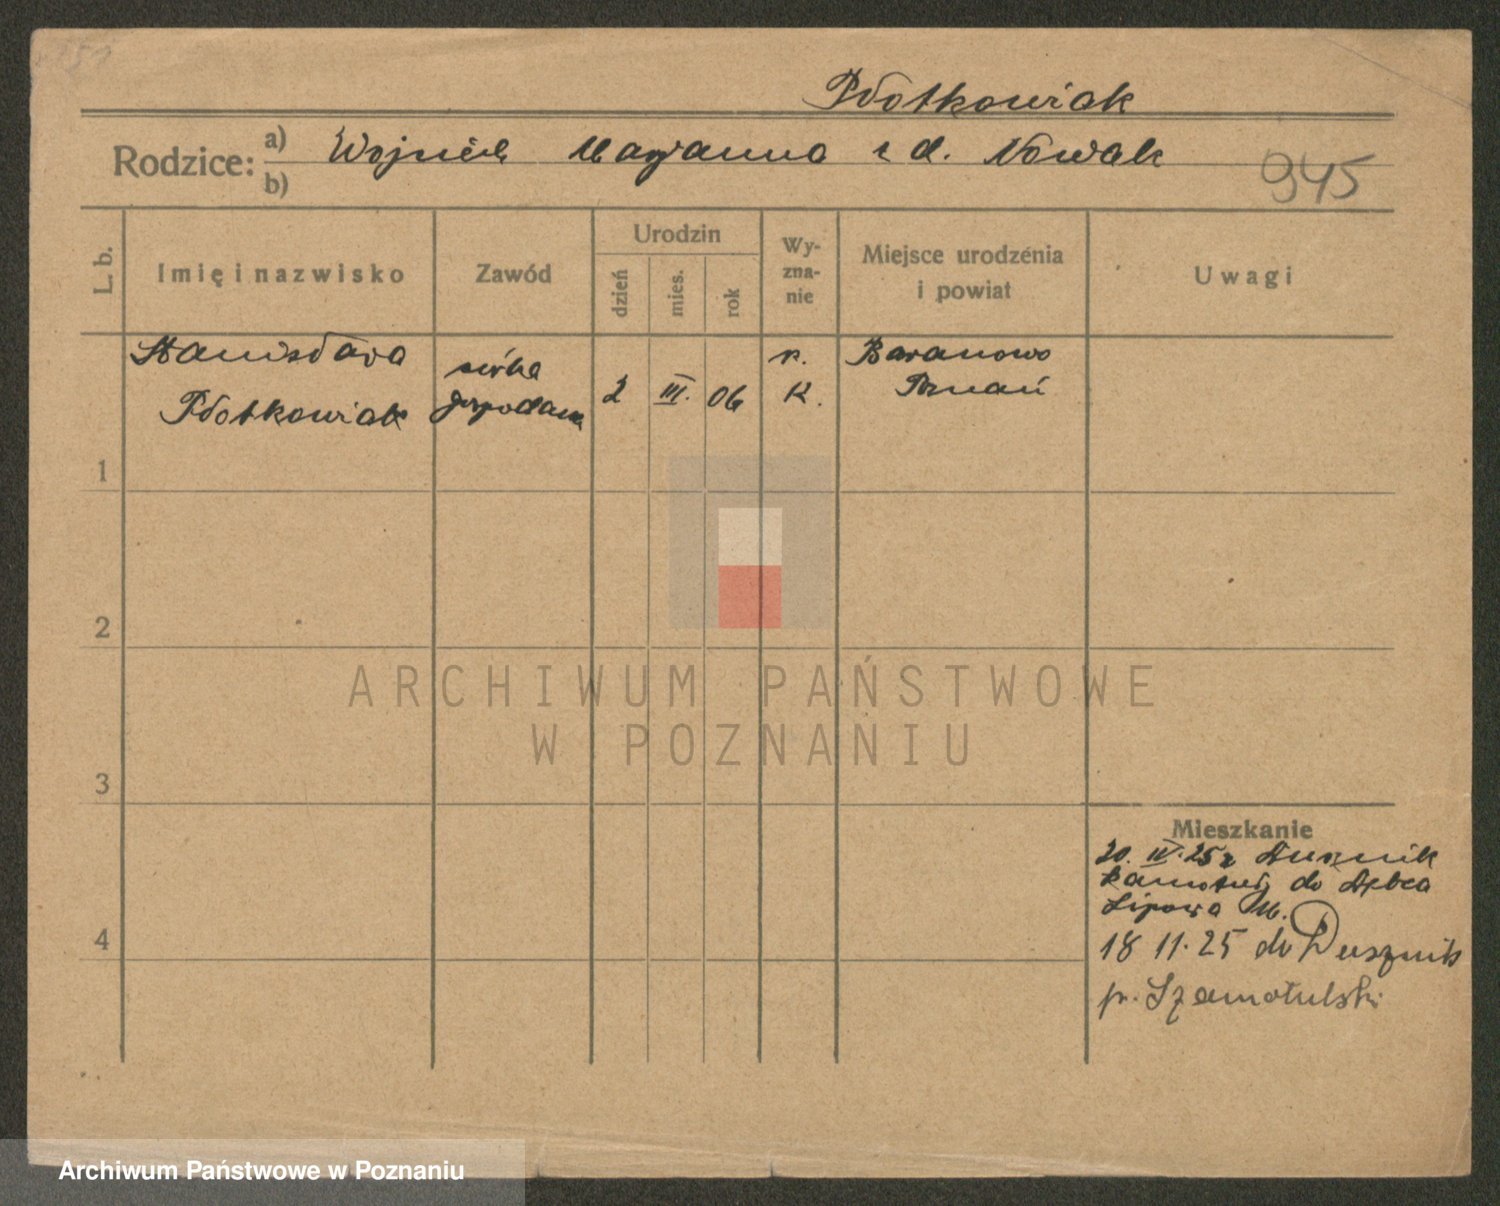 Płotkowiak
Rodzice: a) Wojciech Maryanna z d. Nowak
b)
945
L. b. Imię i nazwisko Zawód Urodzin dzień mies. rok Wy-zna-nie Miejsce urodzenia i powiat Uwagi
Stanisława córka 2 III. 06 r. K. Baranowo Poznań
Płotkowiak gospodarza
1
2
ARCHIWUM PAŃSTWOWE
W POZNANIU
3
Mieszkanie
20. IV. 25 z Dusznik
do Dębca
Lipowa
4
18 11. 25 do Dusznik
p. Szamotulski
Archiwum Państwowe w Poznaniu